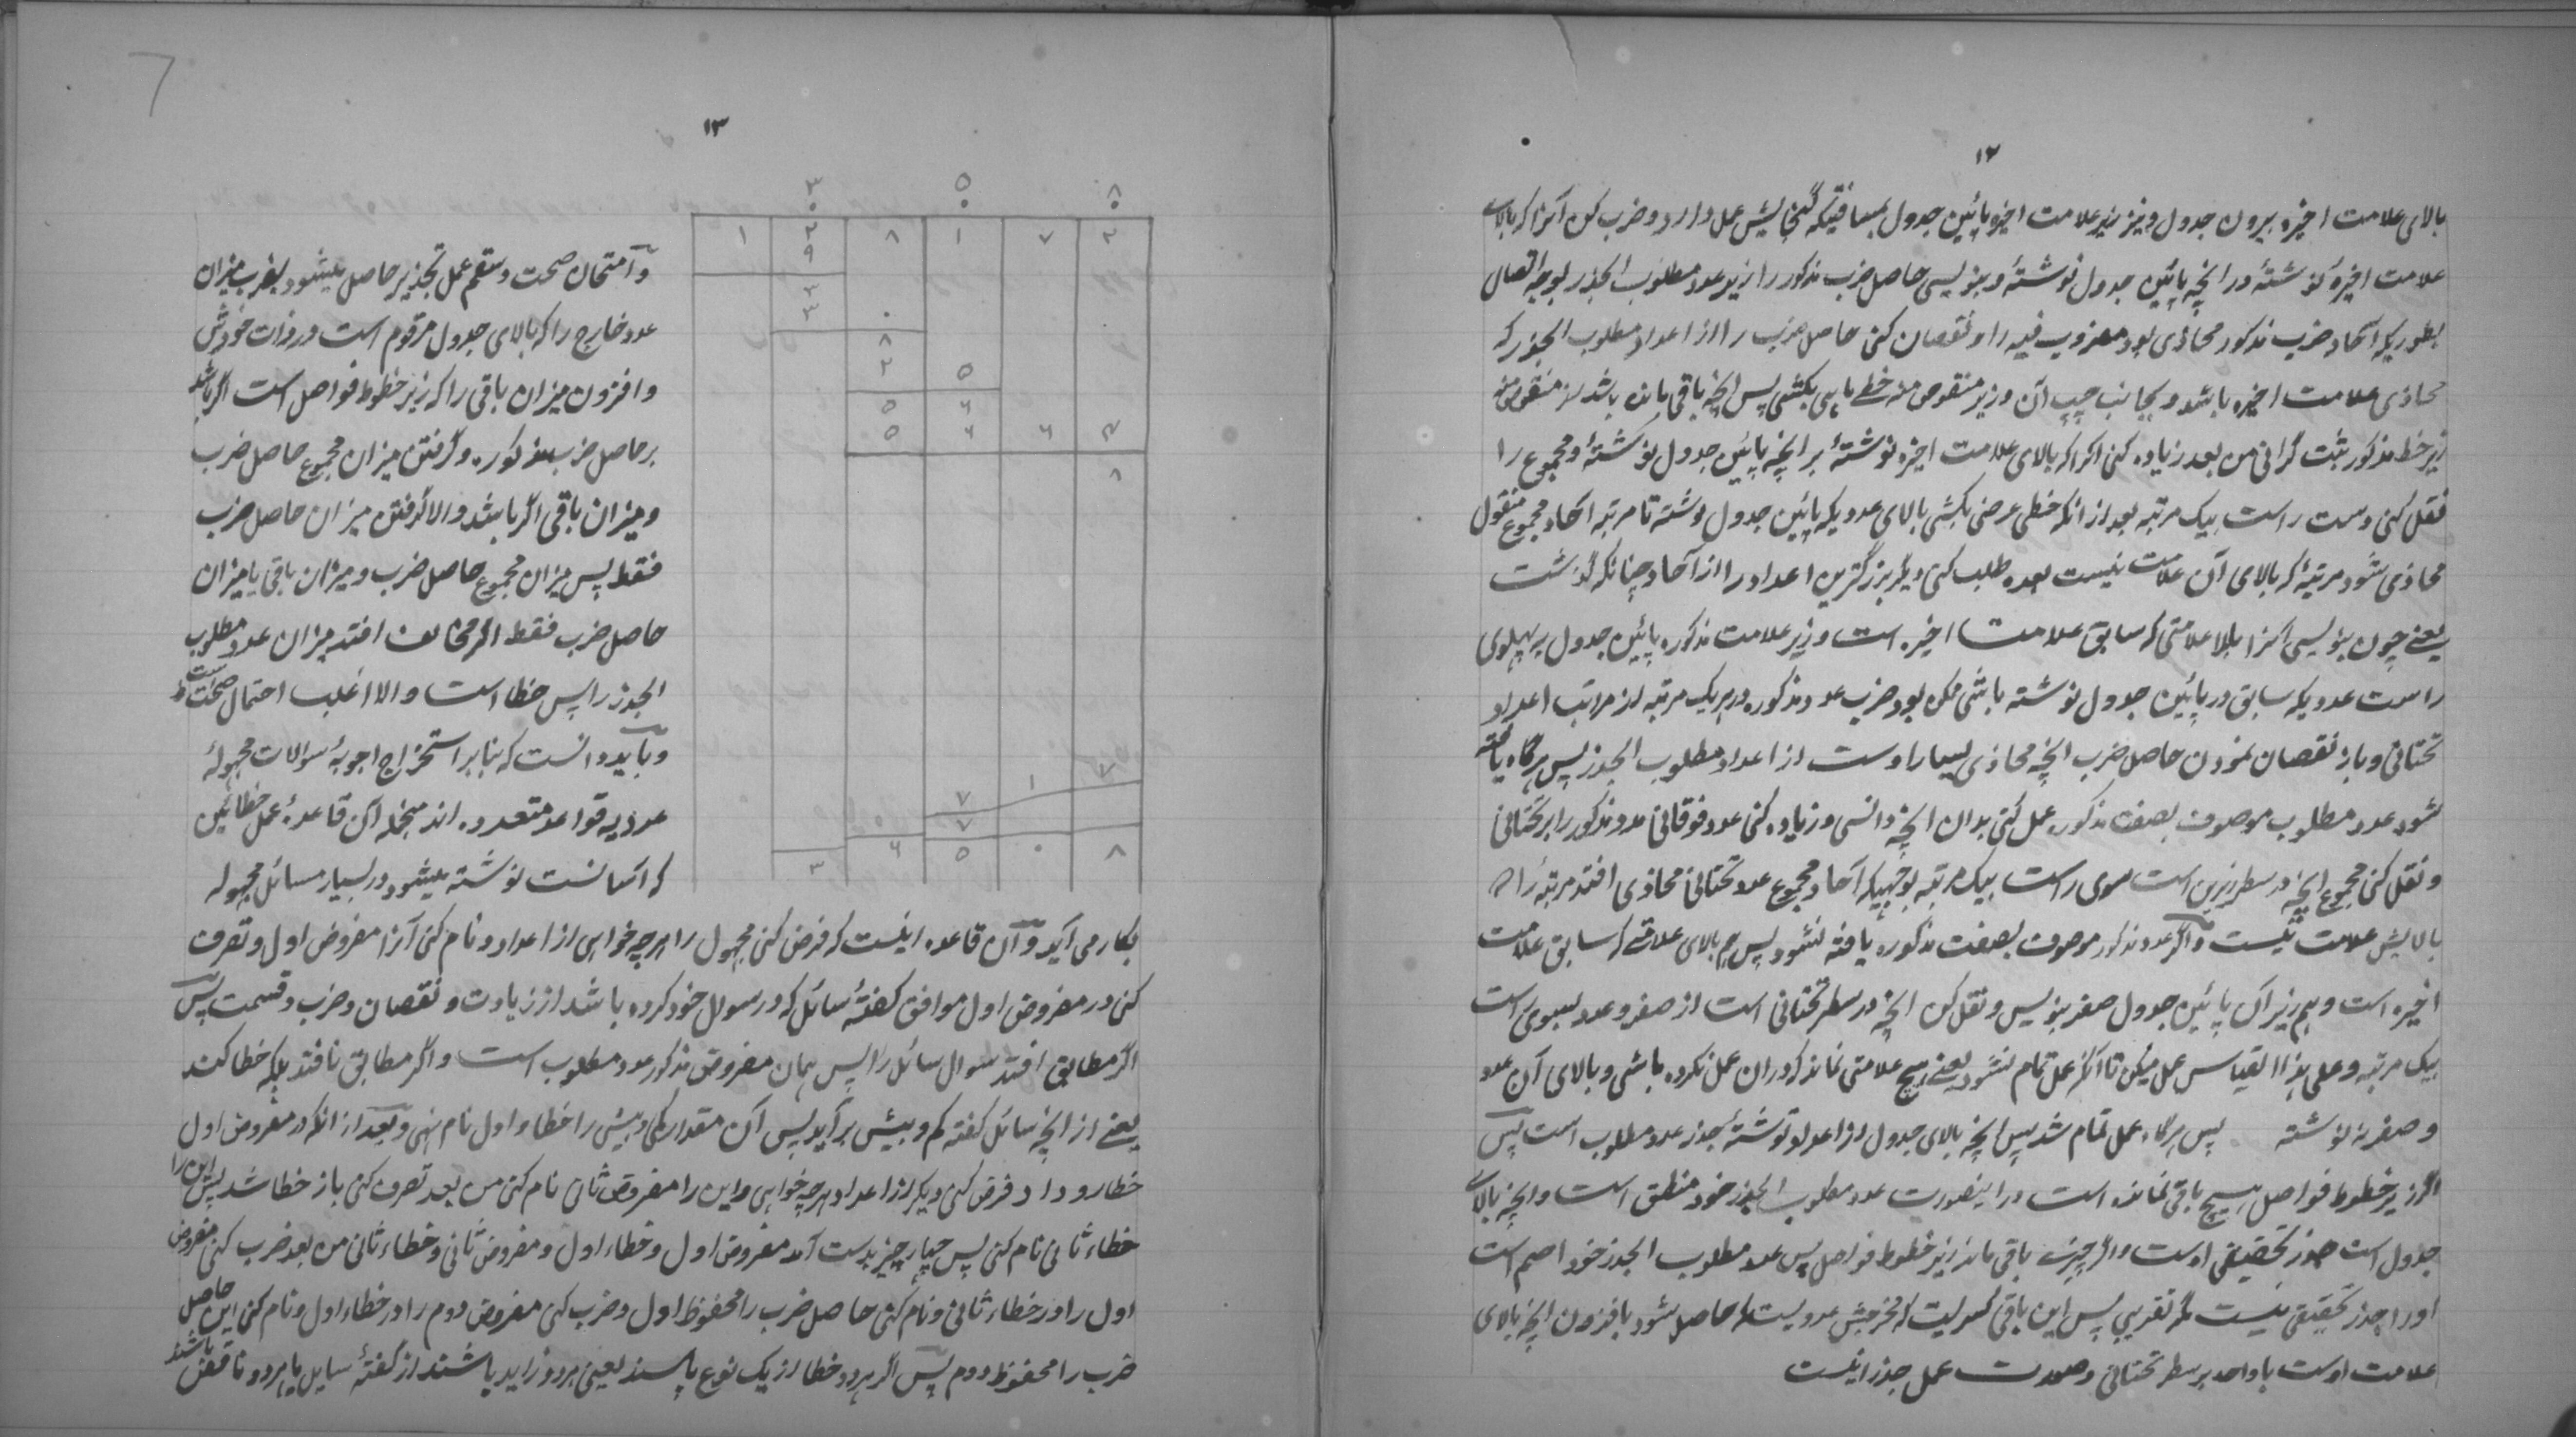 ۱۲
بالای علامت اخیره بیرون جدول و نیز زیر علامت اخیره پائین جدول بمسافتیکه گنجایش عمل دارد و ضرب کن آنرا که بالای
علامت اخیره نوشتهٔ در انچه پائین جدول نوشتهٔ و بنویسی حاصل ضرب مذکور را زیر عدد مطلوب الجذر بوجه اتصال
بطوریکه آحاد ضرب مذکور محاذی بود مضروب فیه را و نقصان کنی حاصل ضرب را از اعداد مطلوب الجذر که
محاذی علامت اخیره باشد و بجانب چپ آن و زیر منقوص منه خطے بکشی پس انچه باقی مانده باشد از منقوص منه
زیر خط مذکور ثبت گرانی من بعد زیاده کنی انرا که بالای علامت اخیره نوشتهٔ بر انچه پائین جدول نوشتهٔ و مجموع را
نقل کنی دست راست بیک مرتبه بعد از انکه خطی عرضی بکشی بالای عددیکه پائین جدول نوشته تا مرتبه آحاد مجموع منقول
محاذی شود مرتبهٔ که بالای آن علامت نیست بعده طلب کنی دیگر بزرگترین اعداد را از آحاد چنانکه گذشت
یعنے چون بنویسی آنرا بالا علامتی که سابق علامت اخیره است و زیر علامت مذکوره پائین جدول بر پهلوی
راست عددیکه سابق در پائین جدول نوشته باشی ممکن بود ضرب عدد مذکوره در هر یک مرتبه از مراتب اعداد
تحتانی و باز نقصان نمودن حاصل ضرب انچه محاذی یسار اوست از اعداد مطلوب الجذر پس هرگاه یافته
شود عدد مطلوب موصوف بصفت مذکوره عمل کنی بدان انچه دانسی و زیاده کنی عدد فوقانی عدد مذکور را بر تحتانی
و نقل کنی مجموع انچه در سطر زیرین است سوی راست بیک مرتبه بوجهیکه آحاد مجموع عدد تحتانی محاذی افتد مرتبهٔ را که
بالایش علامت نیست و اگر عدد مذکور موصوف بصفت مذکوره یافته نشود پس هم بالای علامتے که سابق علامت
اخیره است و هم زیر آن پائین جدول صفر بنویس و نقل کن انچه در سطر تحتانی است از صفر و عدد بسوی راست
بیک مرتبه و علی هذا القیاس عمل میکن تا آنکه عمل تمام شود یعنے هیچ علامتی نماند که دران عمل نکرده باشی و بالای آن عدد
و صفر نه نوشته پس هرگاه عمل تمام شد پس انچه بالای جدول از اعداد نوشتهٔ جذر عدد مطلوب است پس
اگر زیر خطوط فواصل هیچ باقی نمانده است در اینصورت عدد مطلوب الجذر خود منطق است و انچه بالای
جدول است جذر تحقیقی اوست و اگر چیزے باقی ماند زیر خطوط فواصل پس عدد مطلوب الجذر خود اصم است
او را جذر تحقیقی نیست مگر تقریبی پس این باقی کسریست که مخرجش عددیست که حاصل شود بافزودن انچه بالای
علامت اوست با واحد بر سطر تحتانی و صورت عمل جذر اینست
۱۳
۳ ۵ ۸
۱ ۲ ۸ ۱ ۷ ۲
۹
۳
۳ ۰
۸
۲ ۵
۵ ۶
۵ ۶ ۶ ۴
۸
۷ ۱ ۷
۷
۳ ۶ ۵ ۰ ۸
و امتحان صحت و سقم عمل تجذیر حاصل میشود بضرب میزان
عدد خارج را که بالای جدول مرقوم است در ذات خودش
و افزودن میزان باقی را که زیر خطوط فواصل است اگر باشد
بر حاصل ضرب مذکور و گرفتن میزان مجموع حاصل ضرب
و میزان باقی اگر باشد والا گرفتن میزان حاصل ضرب
فقط پس میزان مجموع حاصل ضرب و میزان باقی یا میزان
حاصل ضرب فقط اگر مخالف افتد میزان عدد مطلوب
الجذر را پس خطا است والا اغلب احتمال صحت است
و باید دانست که بنابر استخراج اجوبهٔ سوالات مجهولهٔ
عددیه قواعد متعدده اند منجمله آن قاعدهٔ عمل خطائین
که آسانست نوشته میشود در بسیار مسائل مجهوله
بکار می آید و آن قاعده اینست که فرض کنی مجهول را هرچه خواهی از اعداد و نام کنی آنرا مفروض اول و تصرف
کنی در مفروض اول موافق گفتهٔ سائل که در سوال خود کرده باشد از زیادت و نقصان و ضرب و قسمت پس
اگر مطابق افتد سوال سائل را پس همان مفروض مذکور عدد مطلوب است و اگر مطابق نافتد بلکه خطا کند
یعنے از انچه سائل گفته کم و بیش برآید پس آن مقدار کمی و بیشی را خطاء اول نام نهی و بعد از انکه در مفروض اول
خطا رو داد فرض کنی دیگر از اعداد هرچه خواهی و این را مفروض ثانی نام کنی من بعد تصرف کنی باز خطا شد پس این را
خطاء ثانی نام کنی پس چهار چیز بدست آمد مفروض اول و خطاء اول و مفروض ثانی و خطاء ثانی من بعد ضرب کنی مفروض
اول را در خطاء ثانی و نام کنی حاصل ضرب را محفوظ اول و ضرب کنی مفروض دوم را در خطاء اول و نام کنی این حاصل
ضرب را محفوظ دوم پس اگر هر دو خطا از یک نوع باشند یعنی هر دو زاید باشند از گفتهٔ سایل یا هر دو ناقص باشند